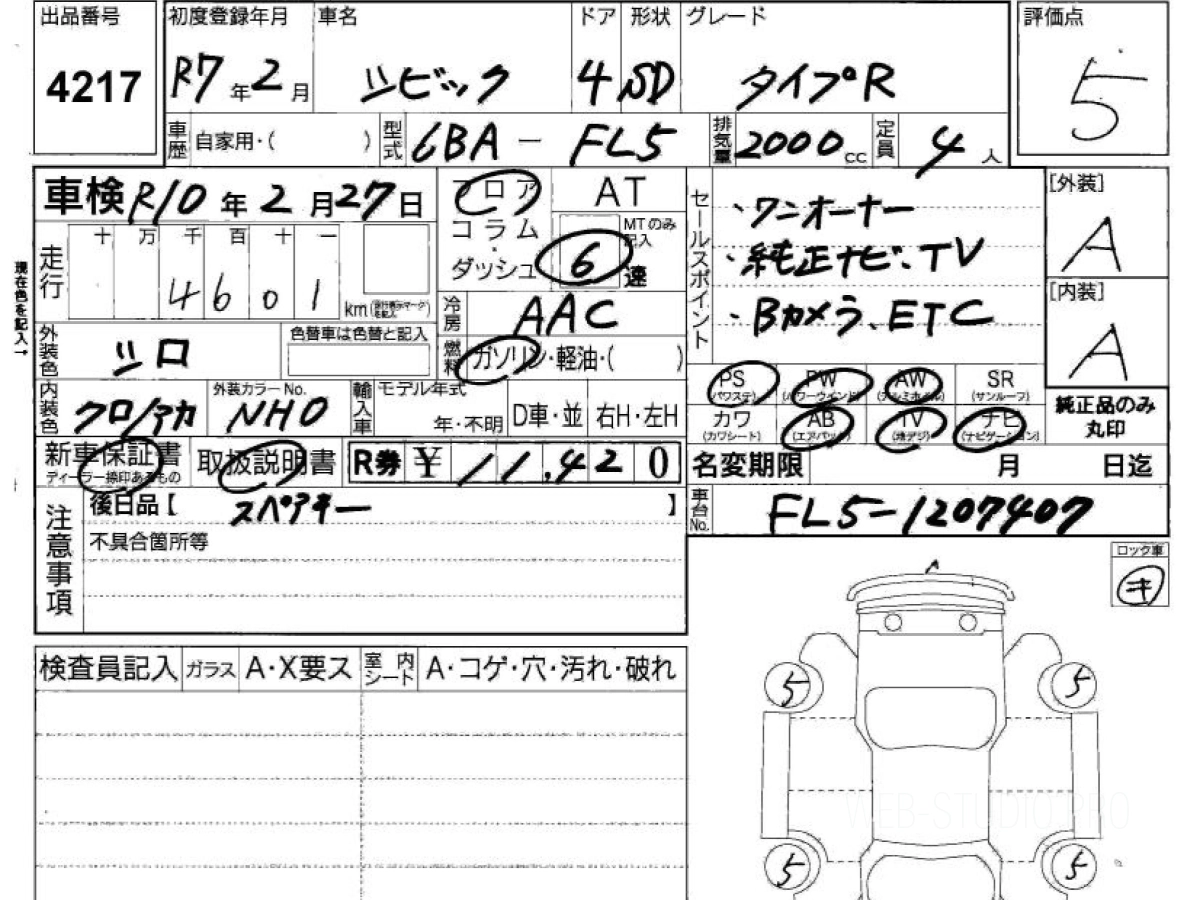 出品番号 初度登録年月 車名 ドア 形状 グレード 評価点
4217 R7年2月 シビック 4 SD タイプR 5
車歴 自家用・( ) 型式 6BA-FL5 排気量 2000cc 定員 4人
車検 R10年2月27日 フロア AT セールスポイント ・ワンオーナー [外装]
コラム・ダッシュ MTのみ記入 6速 ・純正ナビ、TV A
走行 十 万 千 百 十 一
4601 km
現在色を記入→
冷房 AAC ・Bカメラ、ETC [内装]
外装色 シロ 色替車は色替と記入 燃料 ガソリン・軽油・( ) A
PS PW AW SR
(パワステ) (パワーウインド) (アルミホイル) (サンルーフ)
内装色 クロ/アカ 外装カラーNo. NHO 輸入車 モデル年式 年・不明 D車・並 右H・左H カワ AB TV ナビ 純正品のみ丸印
(カワシート) (エアバック) (地デジ) (ナビゲーション)
新車保証書 取扱説明書 R券 ¥ 11,420 名変期限 月 日迄
ディーラー捺印あるもの
注意事項 後日品【 スペアキー 】 車台No. FL5-1207407
不具合箇所等
ロック車
キ
A
検査員記入 ガラス A・X要ス 室内シート A・コゲ・穴・汚れ・破れ
5 5
WEB-STUDIO.PRO
5 5